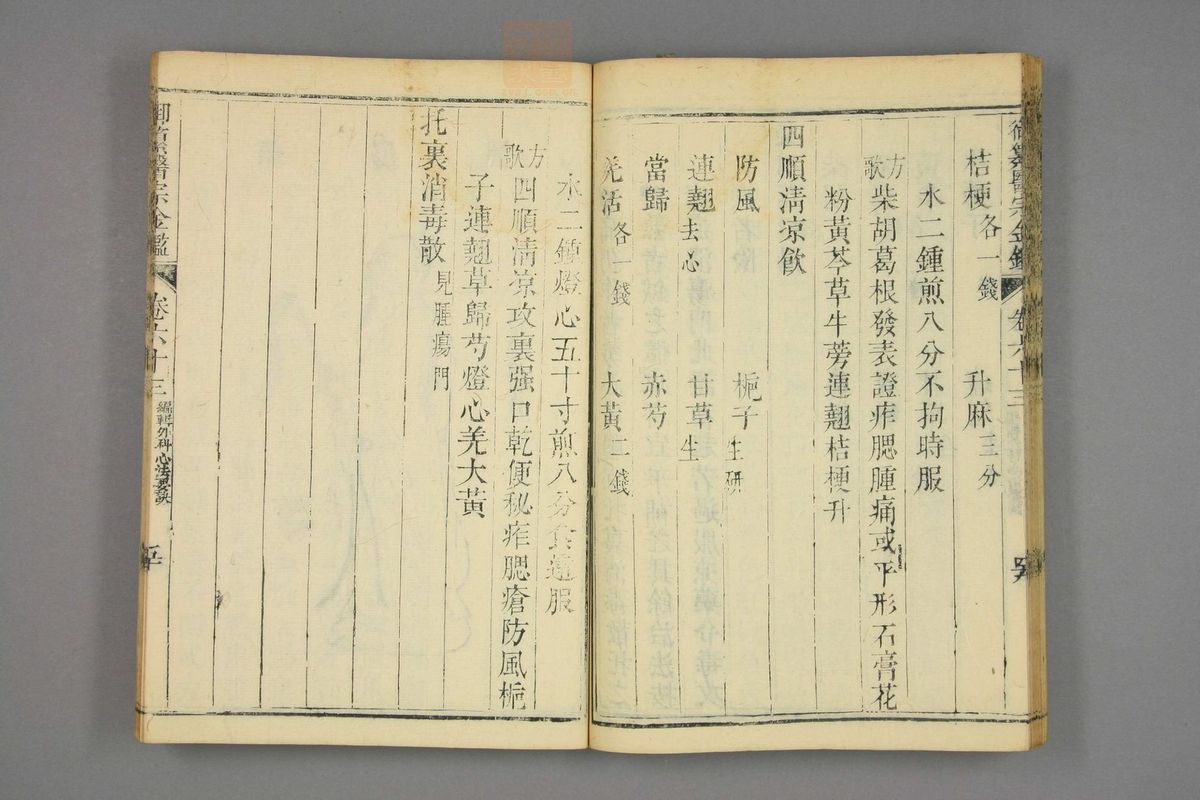 御纂醫宗金鑑 卷六十三
桔梗各一錢 升麻三分
水二鍾煎八分不拘時服
方歌 柴胡葛根發表證痄腮腫痛或平形石膏花
粉黃芩草牛蒡連翹桔梗升
四順清凉飲
防風 梔子生研
連翹去心 甘草生
當歸 赤芍
羌活各一錢 大黃二錢
水二鍾燈心五十寸煎八分食遠服
方歌 四順清凉攻裏强口乾便秘痄腮瘡防風梔
子連翹草歸芍燈心羌大黃
托裏消毒散見腫瘍門
御纂醫宗金鑑 卷六十三 編輯外科心法要訣